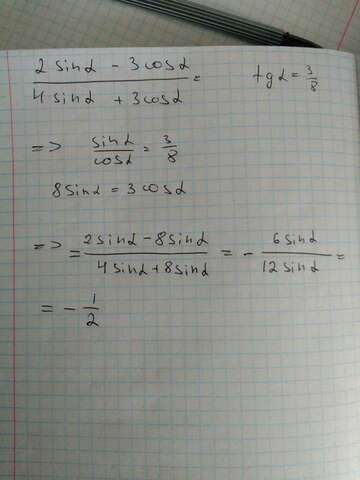 (2 sinα − 3 cosα)/(4 sinα + 3 cosα) = tg α = 3/8
=> sinα/cosα = 3/8
8 sinα = 3 cosα
=> = (2 sinα − 8 sinα)/(4 sinα + 8 sinα) = − 6 sinα/12 sinα =
= − 1/2